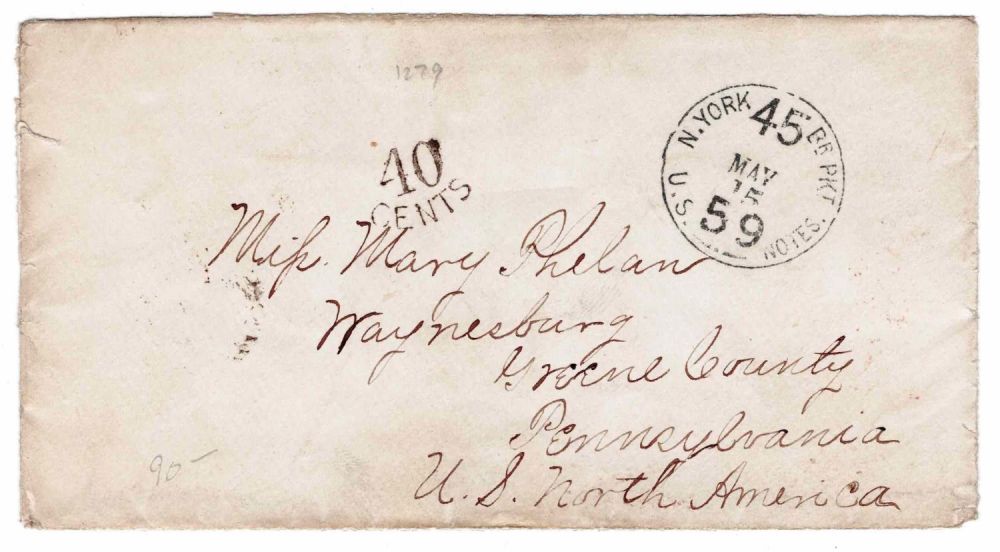 1279
40
CENTS
N. YORK 45 BR. PKT.
MAY
15
59
U.S. NOTES.
Miſs. Mary Phelan
Waynesburg
Greene County
Pennsylvania
U. S. North America
90-